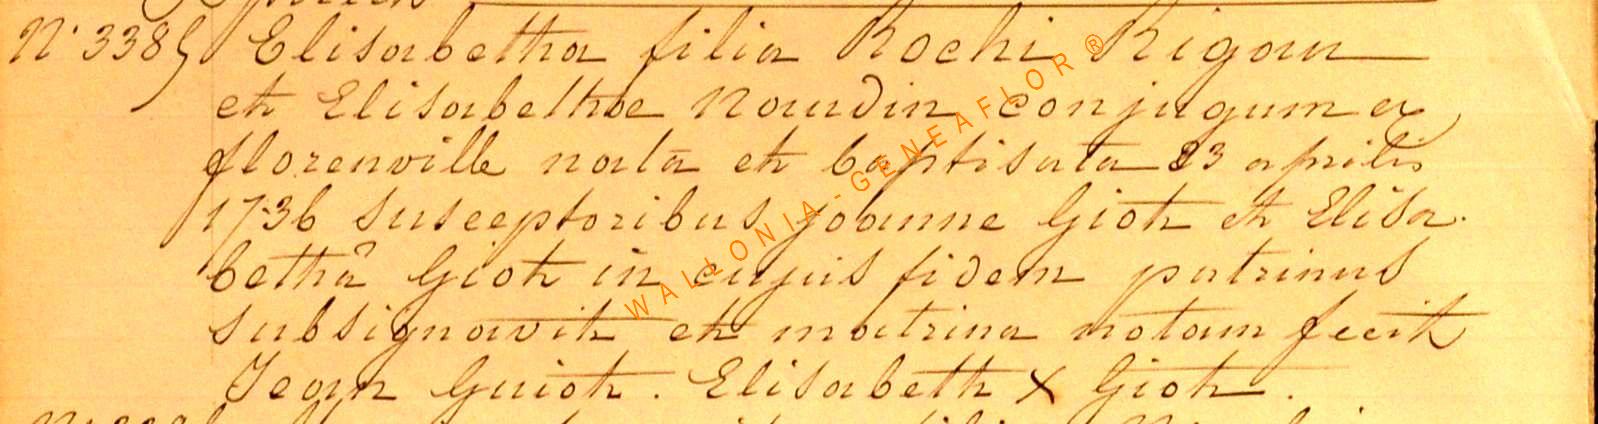 N° 3385 Elisabetha filia Rochi Rigaux
et Elisabethæ Naudin conjugum ex
florenville natā et baptisata 23 aprilis
1736 susceptoribus joanne Giot et Elisa
bethâ Giot in cujus fidem patrinus
subsignavit et matrina notam fecit
Jean Guiot. Elisabeth X Giot.
WALLONIA-GENEAFLOR®